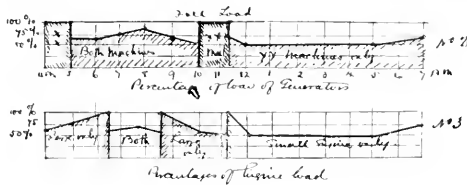 Full Load
100%
75%
50%
Both Machines
YY Machines only
No 2
4 5 6 7 8 9 10 11 12 1 2 3 4 5 6 7 AM
Percentage of load of Generators
100%
75
50%
Large only
Both
Large only
Small Engine only
No 3
Percentages of Engine Load